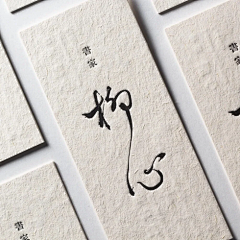 書家
柳心
書家